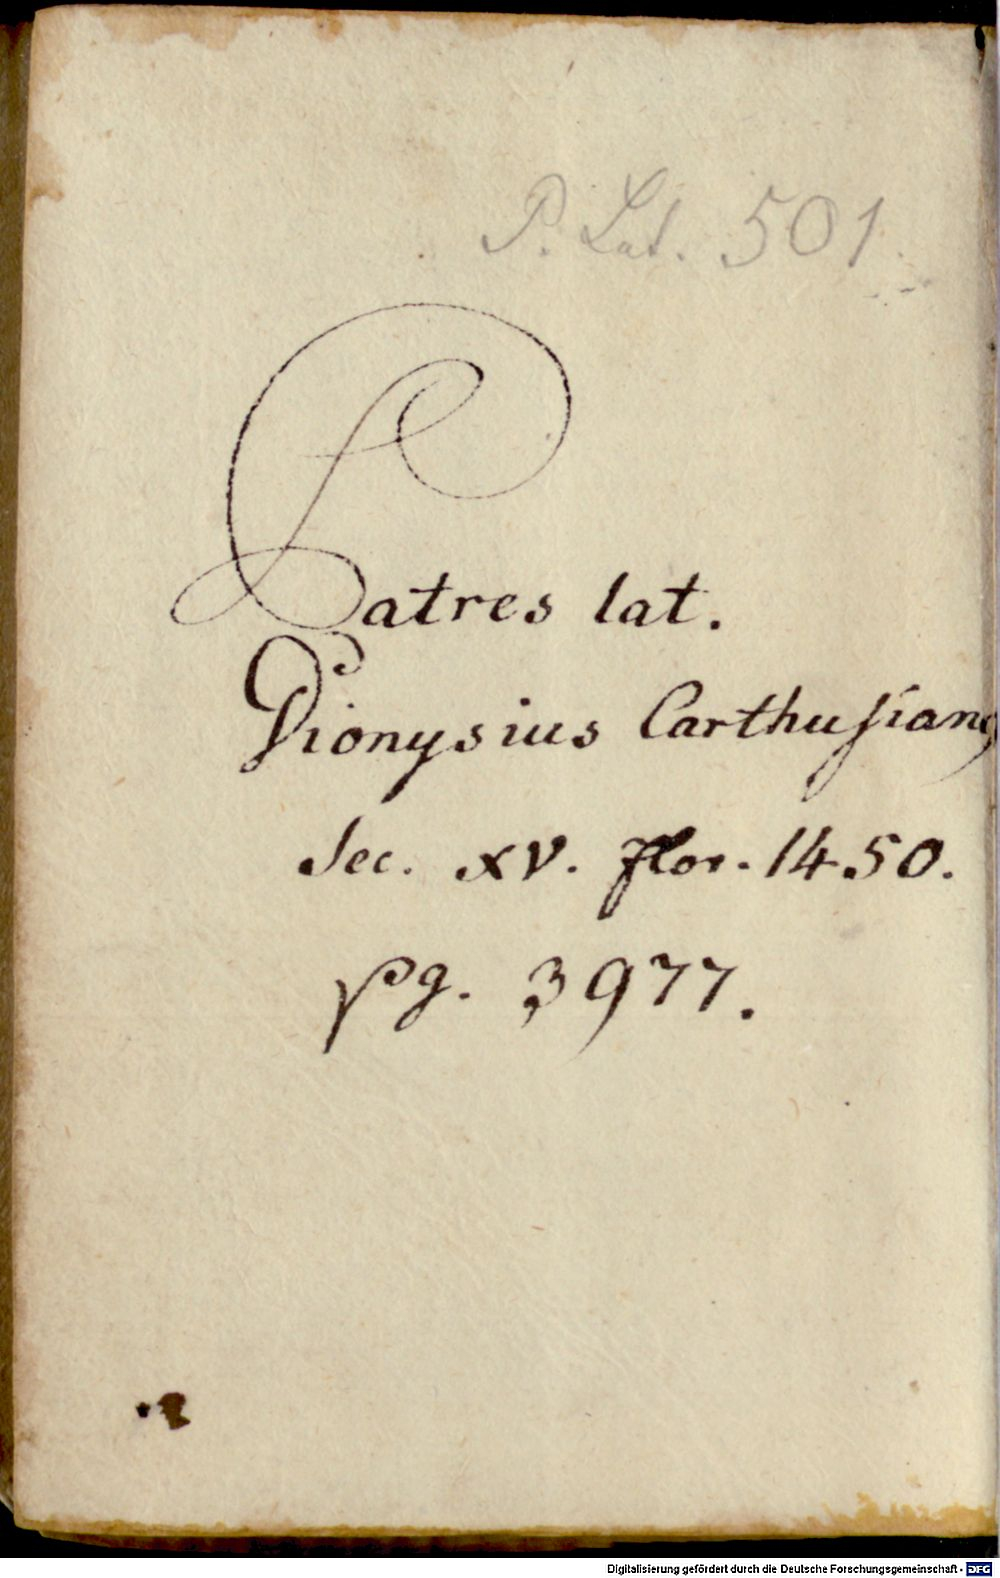 P. Lat. 501
Patres lat.
Dionysius Carthuſianꝰ
Sec. XV. flor. 1450.
pg. 3977.
Digitalisierung gefördert durch die Deutsche Forschungsgemeinschaft - DFG